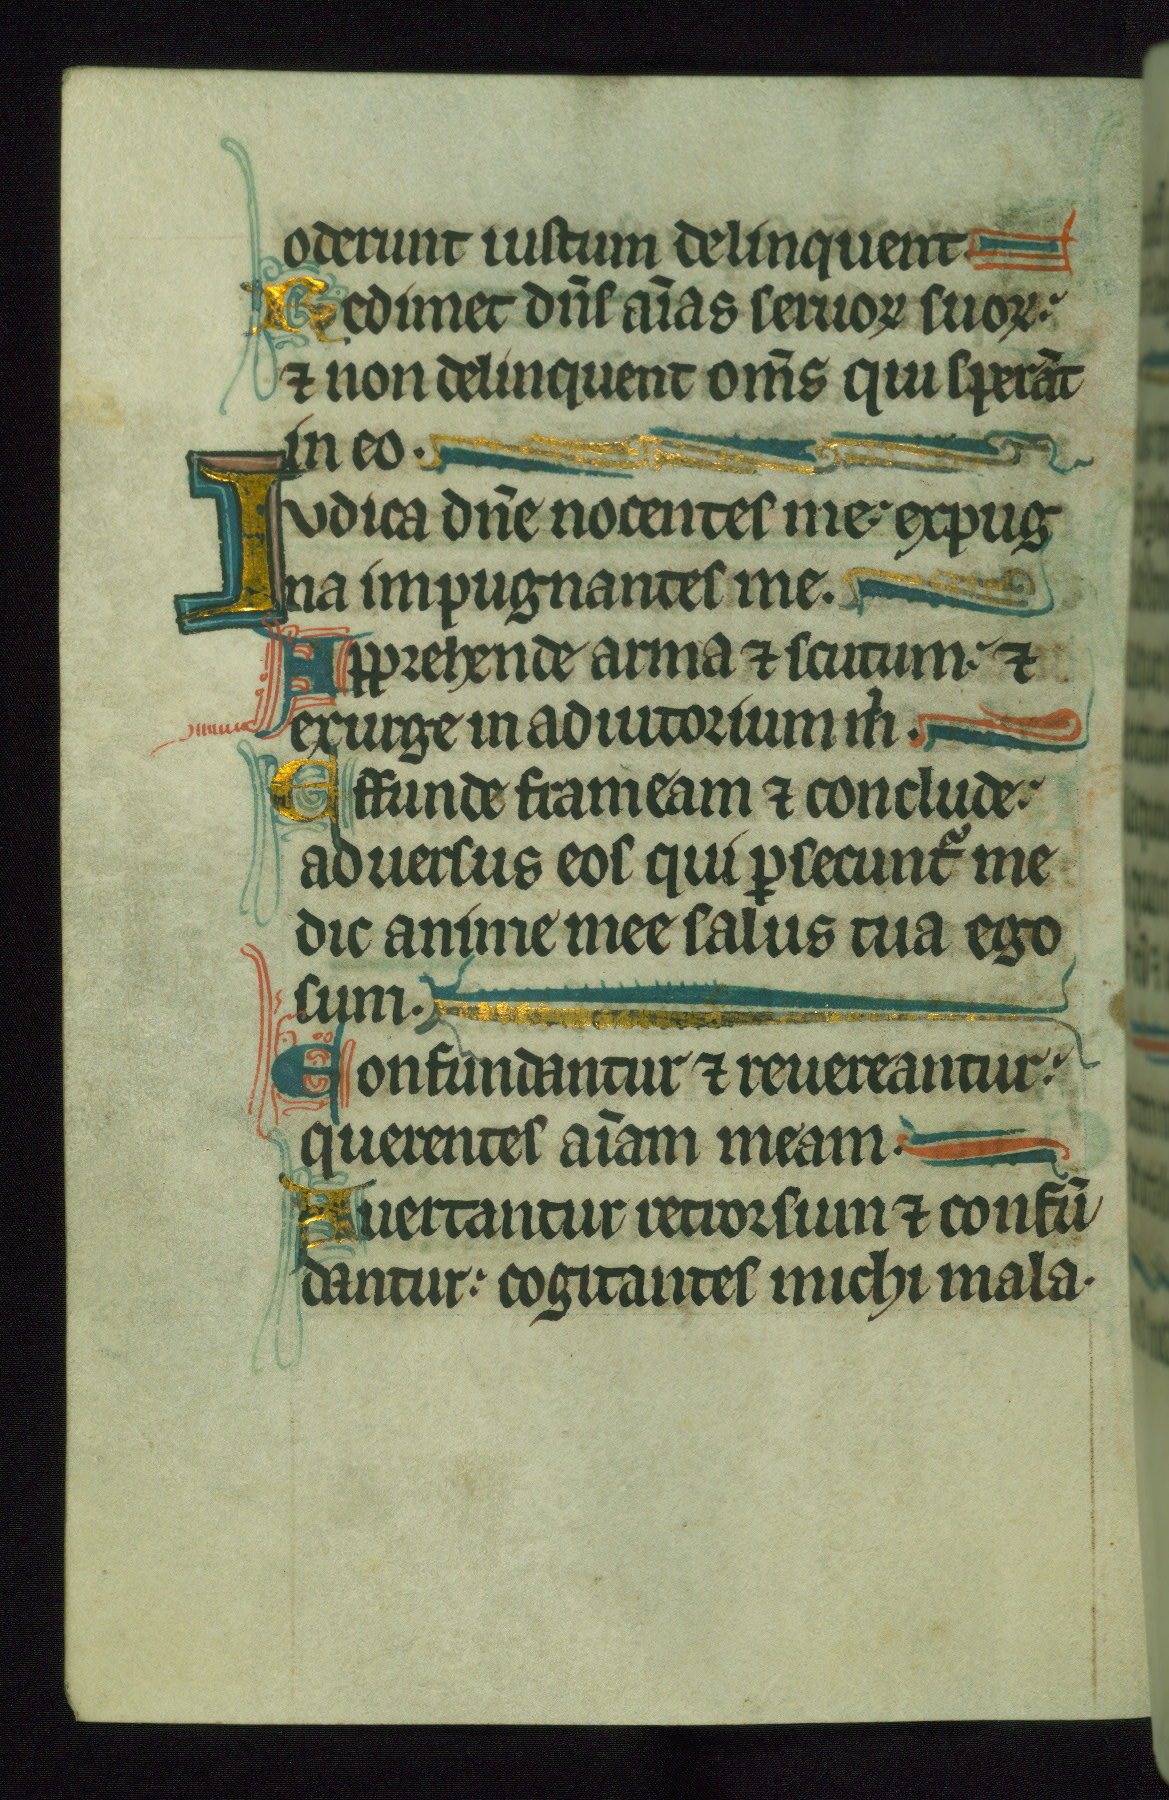 oderunt iustum delinquent.
Redimet dn̄s aīas seruoꝝ suoꝝ:
⁊ non delinquent om̄s qui sperāt
in eo.
Iudica dn̄e nocentes me: expug
na impugnantes me.
Apprehende arma ⁊ scutum: ⁊
exurge in adiutorium m̄.
Effunde frameam ⁊ conclude:
aduersus eos qui ꝑsecunt᷑ me
dic anime mee salus tua ego
sum.
Confundantur ⁊ reuereantur:
querentes aīam meam.
Auertantur retrorsum ⁊ confū
dantur: cogitantes michi mala.